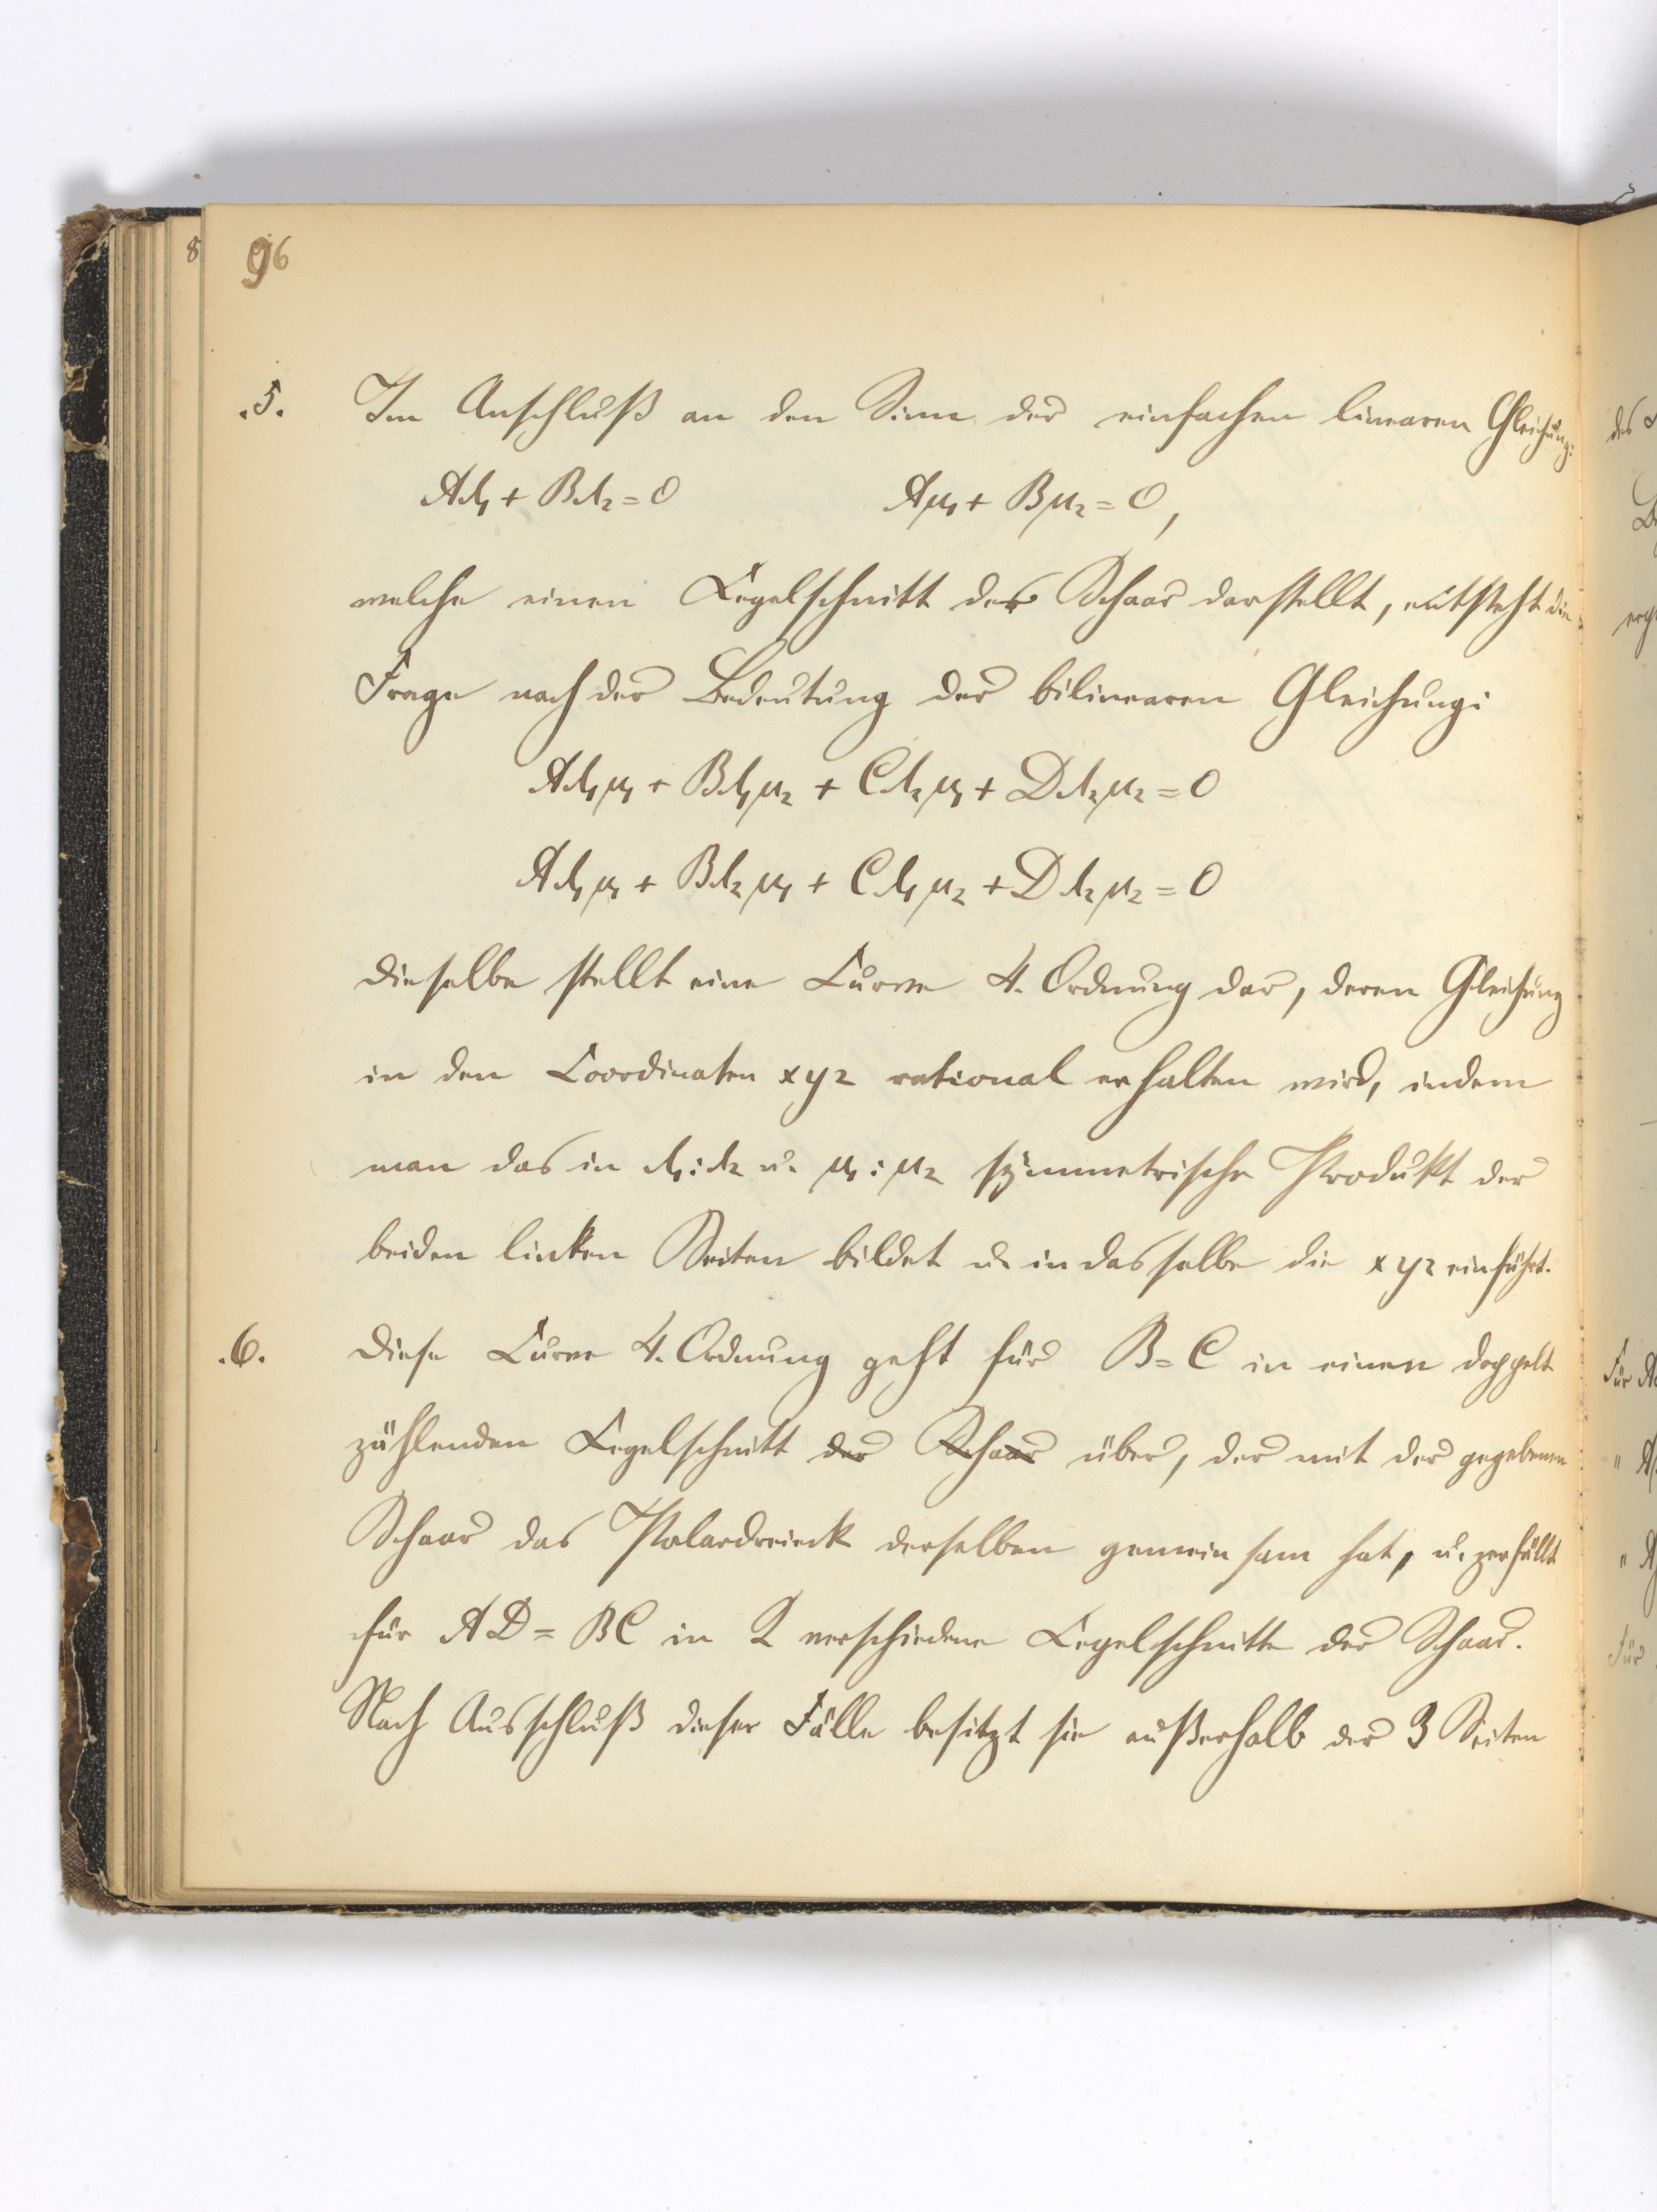 8
96
.5. Im Anschluß an den Sinn der einfachen linearen Gleichung:
Aλ₁ + Bλ₂ = 0 Aμ₁ + Bμ₂ = 0,
welche einen Kegelschnitt der Schaar darstellt, entsteht die
Frage nach der Bedeutung der bilinearen Gleichung:
Aλ₁μ₁ + Bλ₁μ₂ + Cλ₂μ₁ + Dλ₂μ₂ = 0
Aλ₁μ₁ + Bλ₂μ₁ + Cλ₁μ₂ + Dλ₂μ₂ = 0
Dieselbe stellt eine Curve 4. Ordnung dar, deren Gleichung
in den Coordinaten x y z rational erhalten wird, indem
man das in λ₁:λ₂ u. μ₁:μ₂ symmetrische Produkt der
beiden linken Seiten bildet u. in dasselbe die x y z einführt.
.6. Diese Curve 4. Ordnung geht für B = C in einen doppelt
zählenden Kegelschnitt der Schaar über, der mit der gegebenen
Schaar das Polardreieck derselben gemeinsam hat, u. zerfällt
für AD = BC in 2 verschiedene Kegelschnitte der Schaar.
Nach Ausschluß dieser Fälle besitzt sie außerhalb der 3 Seiten
des
Für A
" A
" A
Für